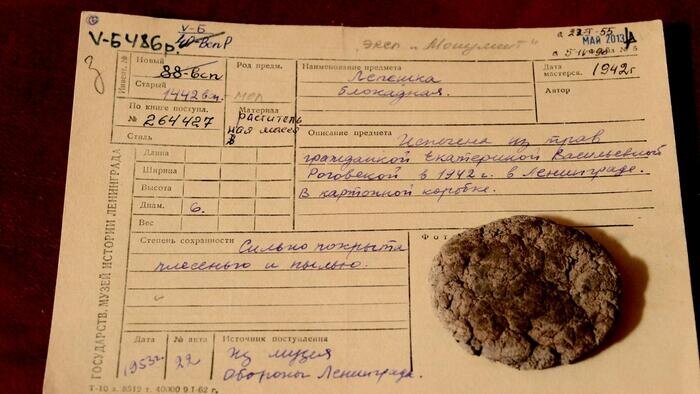 V-Б
V-Б 486р
эксп „Монумент“
МАЙ 2013
Новый
88-всп
Старый
Инвент. №
По книге поступл.
№ 264427
Стиль
Род предм.
Материал
раститель
ная масса
Наименование предмета
Лепешка
блокадная.
Дата
мастерск.
1942г
Автор
Описание предмета
Испечена из трав
гражданкой Екатериной Васильевной
Роговской в 1942 г. в Ленинграде.
В картонной коробке.
Длина
Ширина
Высота
Диам.
6.
Вес
Степень сохранности
Сильно покрыта
плесенью и пылью
Фот
Дата
1953г.
№ акта
22
Источник поступления
Из музея
Обороны Ленинграда.
ГОСУДАРСТВ. МУЗЕЙ ИСТОРИИ ЛЕНИНГРАДА
Т-10 з. 8512 т. 40000 9/I-62 г.